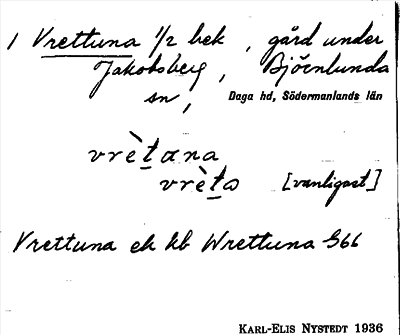 1 Vrettuna 1/2 bek , gård under
Jakobsberg , Björnlunda
sn , Daga hd, Södermanlands län
vrètana
vrèta [vanligast]
Vrettuna ek kb Wrettuna 566
KARL-ELIS NYSTEDT 1936